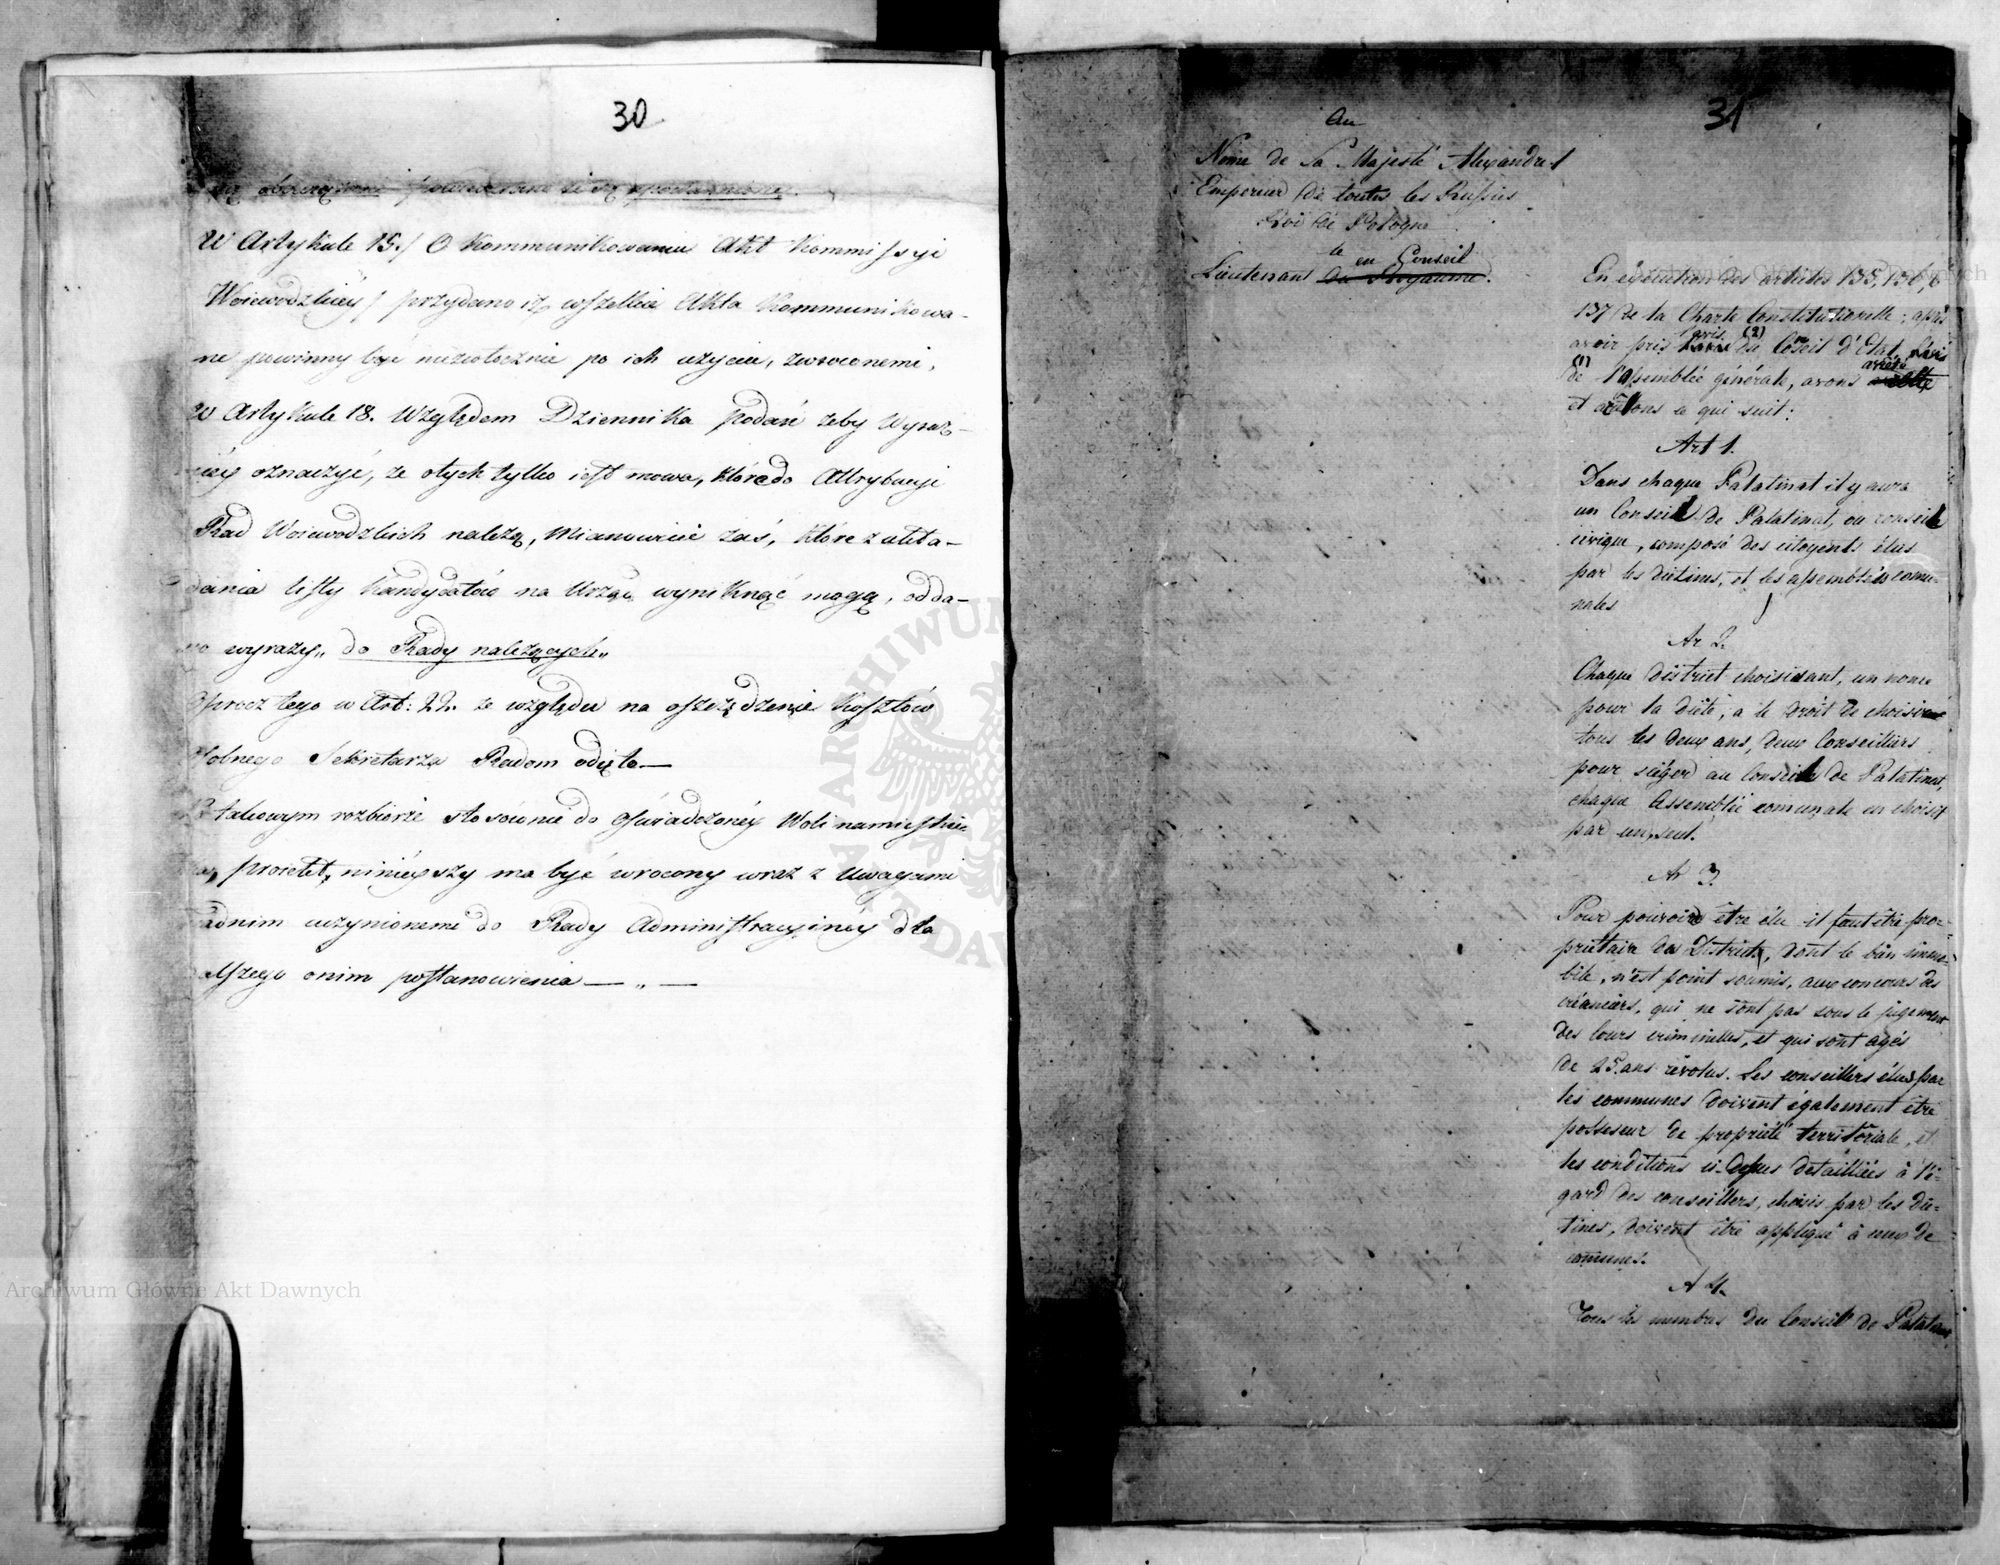 30
W Artykule 15./ O Kommunikowaniu Akt Kommissyi
Woiewodzkiey / przydano iż wszelkie Akta Kommunikowa-
ne powinny być niezwłocznie po ich użyciu, zwroconemi,
W Artykule 18. Względem Dziennika Podań żeby Wyraź-
niey oznaczyć, że o tych tylko iest mowa, które do Attrybucyi
Rad Woiewodzkich należą, Mianowicie zaś, które z ukła-
dania listy Kandydatów na Urzęd: wyniknąć mogą, odda-
no wyrazy,, do Rady należących,,
Oprocz tego w Art: 22. ze względu na oszczędzenie Kosztów
osobnego Sekretarza Radom odięto —
Po takowym rozbiorze stosownie do oświadczoney Woli namiestni-
ka, proiekt, ninieyszy ma być wrocony wraz z Uwagami
nad nim uczynionemi do Rady Administracyiney dla
dalszego o nim postanowienia — „ —
31
Au
Nome de Sa Majesté Alexandre 1
Empereur de toutes les Russies
Roi de Pologne
le en Conseil
Lieutenant du Royaume.
En éxécution des articles 135, 136, &
137 de la Charte Constitutionelle; après
avoir pris l'avis (2) du Conseil d'Etat,
(1) de l'assemblée générale, avons arrêté
et arêtons ce qui suit:
Art 1.
Dans chaque Palatinat il y aura
un Conseil de Palatinat, ou conseil
civique, composé des citoyents élus
par les diétines, et les assemblées comu-
nales
Ar 2.
Chaque district choisisant, un nonce
pour la diète, a le droit de choisir
tous les deux ans, deux Conseillers
pour siéger au Conseil de Palatinat,
chaque Assemblée comunale en choisit
par un seul.
Ar 3.
Pour pouvoir être élu il faut être pro-
priétaire du District, dont le bien immo-
bile, n'est point soumis, aux concours des
créanciers, qui ne sont pas sous le jugement
des Cours criminelles, et qui sont agés
de 25 ans révolus. Les conseillers élus par
les communes doivent également être
possesseur de propriété territoriale, et
les conditions ci-dessus detaillées à l'é-
gard des conseillers, choisis par les dié-
tines, doivent être appliqué à ceux de
comunes.
A 4.
Tous les membres du Conseil de Palatinat
Archiwum Główne Akt Dawnych
ARCHIWUM
AKT DAW